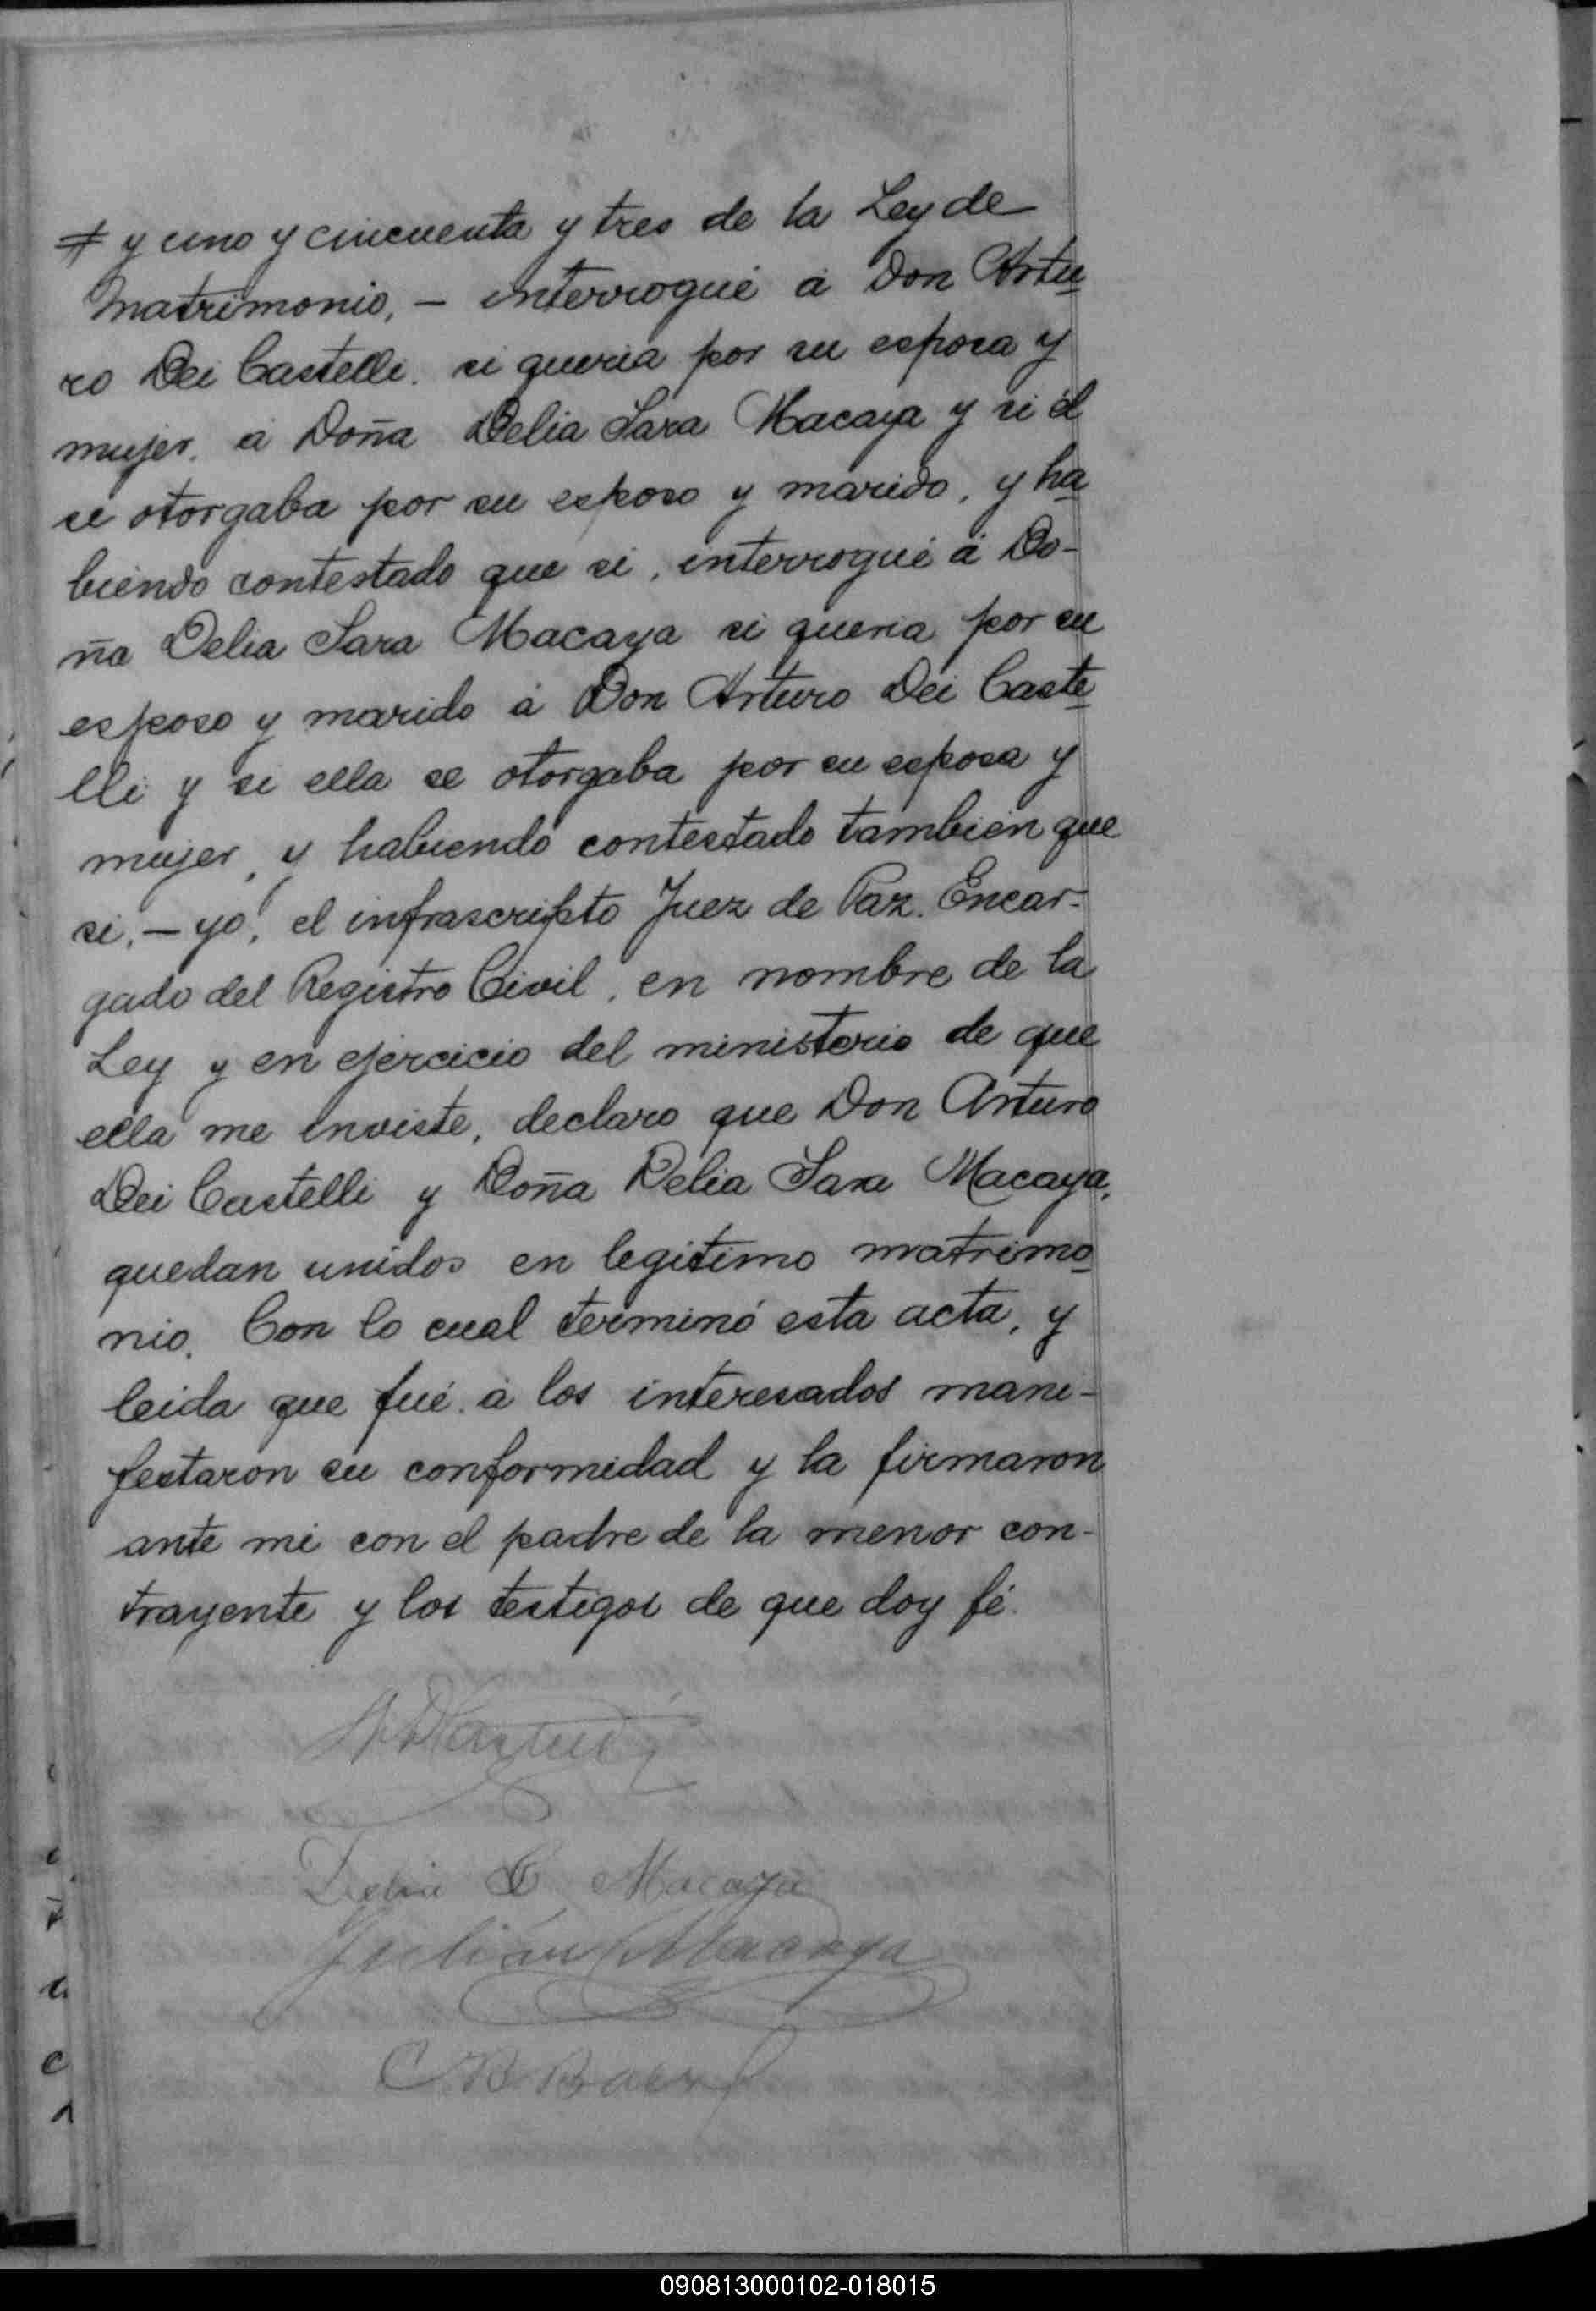 # y uno y cincuenta y tres de la Ley de
Matrimonio, - interrogué á Don Artu
ro Dei Castelli. si queria por su esposa y
mujer. á Doña Delia Sara Macaya y si él
se otorgaba por su esposo y marido, y ha
biendo contestado que si, interrogué á Do-
ña Delia Sara Macaya si queria por su
esposo y marido á Don Arturo Dei Caste
lli y si ella se otorgaba por su esposa y
mujer, y habiendo contestado tambien que
si, - yo, el infrascripto Juez de Paz. Encar-
gado del Registro Civil, en nombre de la
Ley y en ejercicio del ministerio de que
ella me enviste, declaro que Don Arturo
Dei Castelli y Doña Delia Sara Macaya,
quedan unidos en legitimo matrimo
nio. Con lo cual terminó esta acta, y
leida que fué á los interesados mani-
festaron su conformidad y la firmaron
ante mi con el padre de la menor con-
trayente y los testigos de que doy fé.
Delia S Macaya
Julián Macaya
090813000102-018015